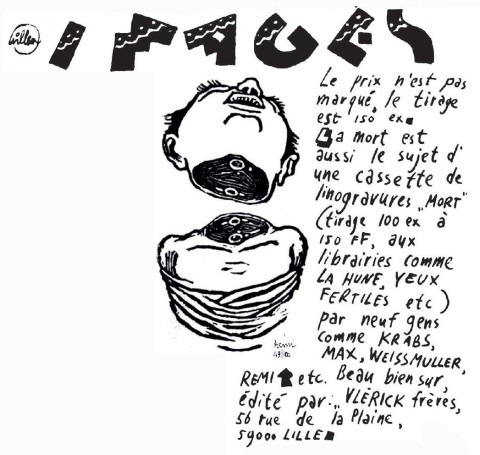 Willem
IMAGES
Le prix n'est pas
marqué, le tirage
est 150 ex.
La mort est
aussi le sujet d'
une cassette de
linogravures „MORT"
(tirage 100 ex à
150 FF, aux
librairies comme
LA HUNE, YEUX
FERTILES etc)
par neuf gens
comme KRABS,
MAX, WEISSMULLER,
REMI etc. Beau bien sur,
édité par: „VLERICK frères,
56 rue de la Plaine,
59000 LILLE
Remi